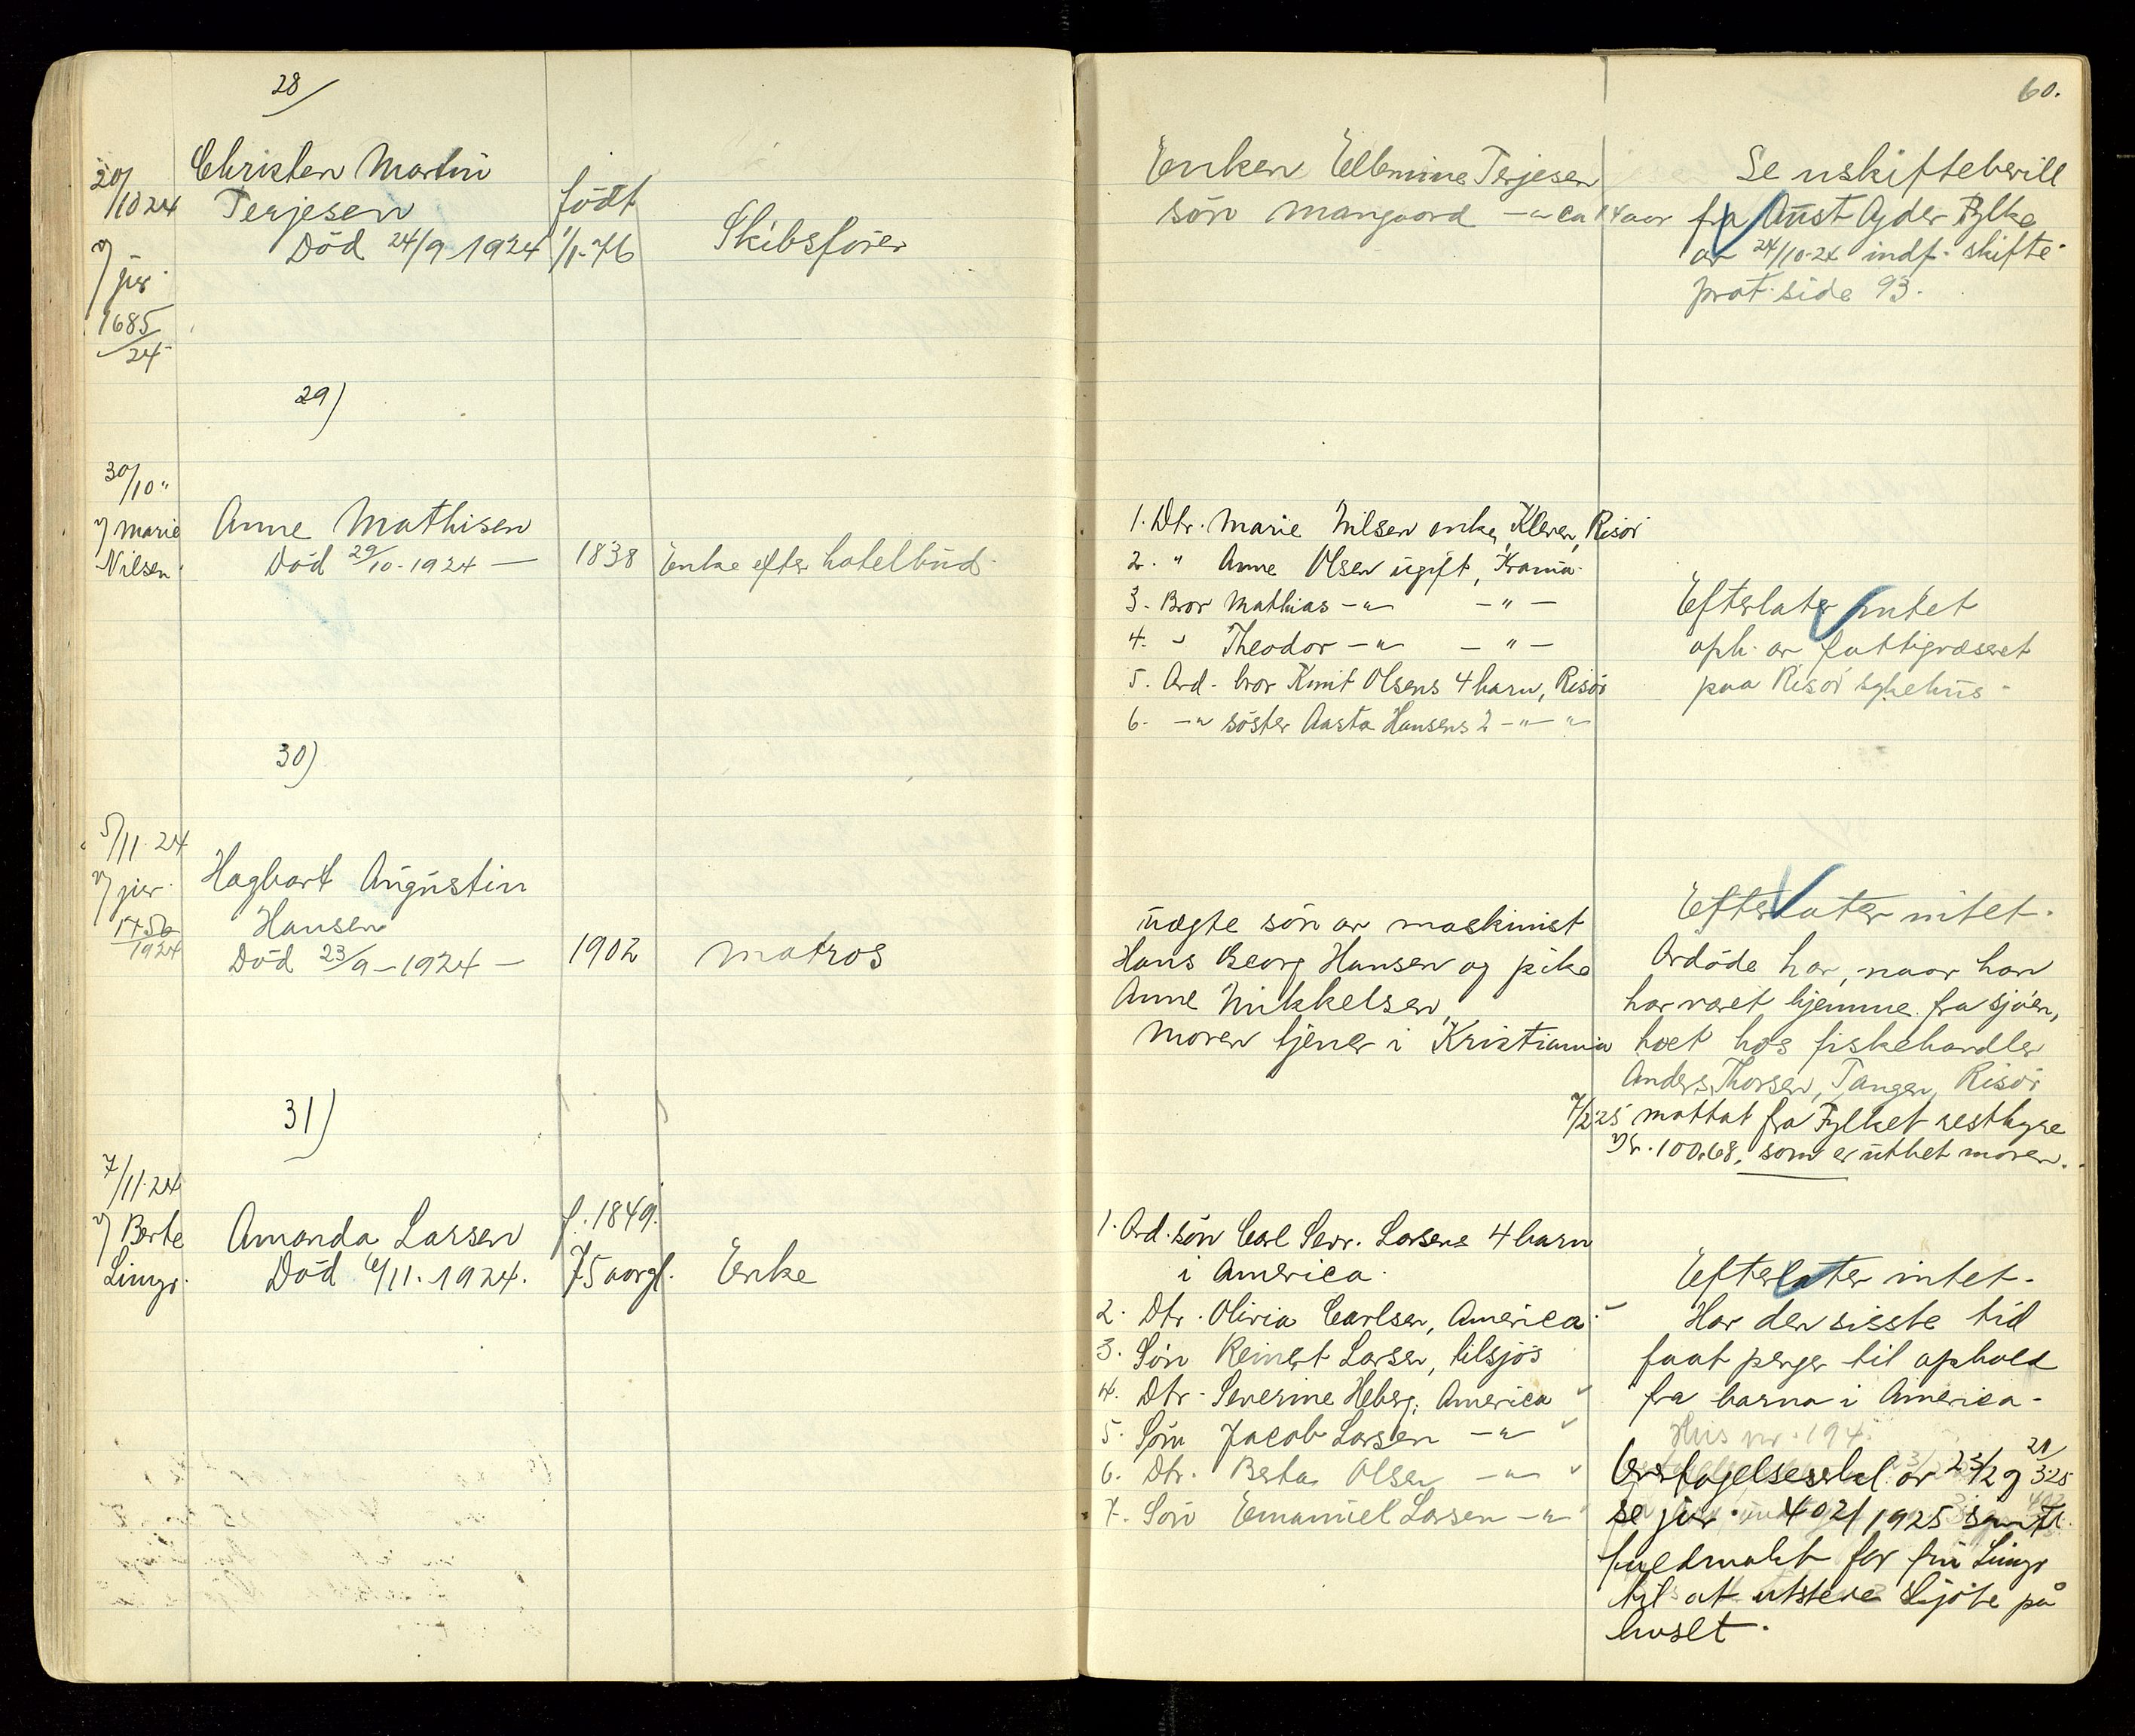 60.
28/
20/10 24
v/ jur.
1685/24
Christen Martin
Terjesen
Död 24/9 1924
födt
1/1-76
Skibsförer
Enken Ellemine Terjesen
sön Mangvard —"— ca 14 aar
Se uskiftebevill
fra Aust Agder Fylke
av 24/10-24 indf. skifte
prot. side 93.
29)
30/10 "
v/ Marie
Nilsen
Anne Mathisen
Död 29/10-1924 —
1838
Enke efter hotelbud
1. Dtr. Marie Nilsen enke, Kleven, Risör
2. " Anne Olsen ugift, Krania
3. Bror Mathias —"— — " —
4. " Theodor —"— — " —
5. Avd. bror Knut Olsens 4 barn, Risör
6. —"— söster Aasta Hansens 2 —"— "
Efterlater intet
oph. av fattigvæsenet
paa Risör sykehus
30)
5/11-24
v/ jur.
1756/1924
Hagbart Augustin
Hansen
Död 23/9-1924 —
1902
Matros
uægte sön av maskinist
Hans Georg Hansen og pike
Anne Mikkelsen,
Moren tjener i Kristiania
Efterlater intet.
Avdöde har, naar han
har været hjemme fra sjöen,
boet hos fiskehandler
Anders Thorsen, Tangen, Risör
7/2 25 mottat fra Fylket resthyre
Kr. 100,68, som er utbet moren.
31)
7/11-24
v/ Berte
Lunge.
Amanda Larsen
Död 6/11. 1924.
f. 1849.
75 aar gl.
Enke
1. Avd. sön Carl Sevr. Larsens 4 barn
i America.
2. Dtr. Olivia Carlsen, America
3. Sön Reinert Larsen, tilsjös
4. Dtr. Severine Heberg, America
5. Sön Jacob Larsen —"—
6. Dtr. Berta Olsen —"—
7. Sön Emanuel Larsen —"—
Efterlater intet.
Har den sisste tid
faat penger til ophold
fra barna i America.
Hus nr. 194.
av 23/2 og 21/3 25
se jur. 402/1925 samt
fuldmakt for fru Lunge
til at utstede skjöte på
huset.